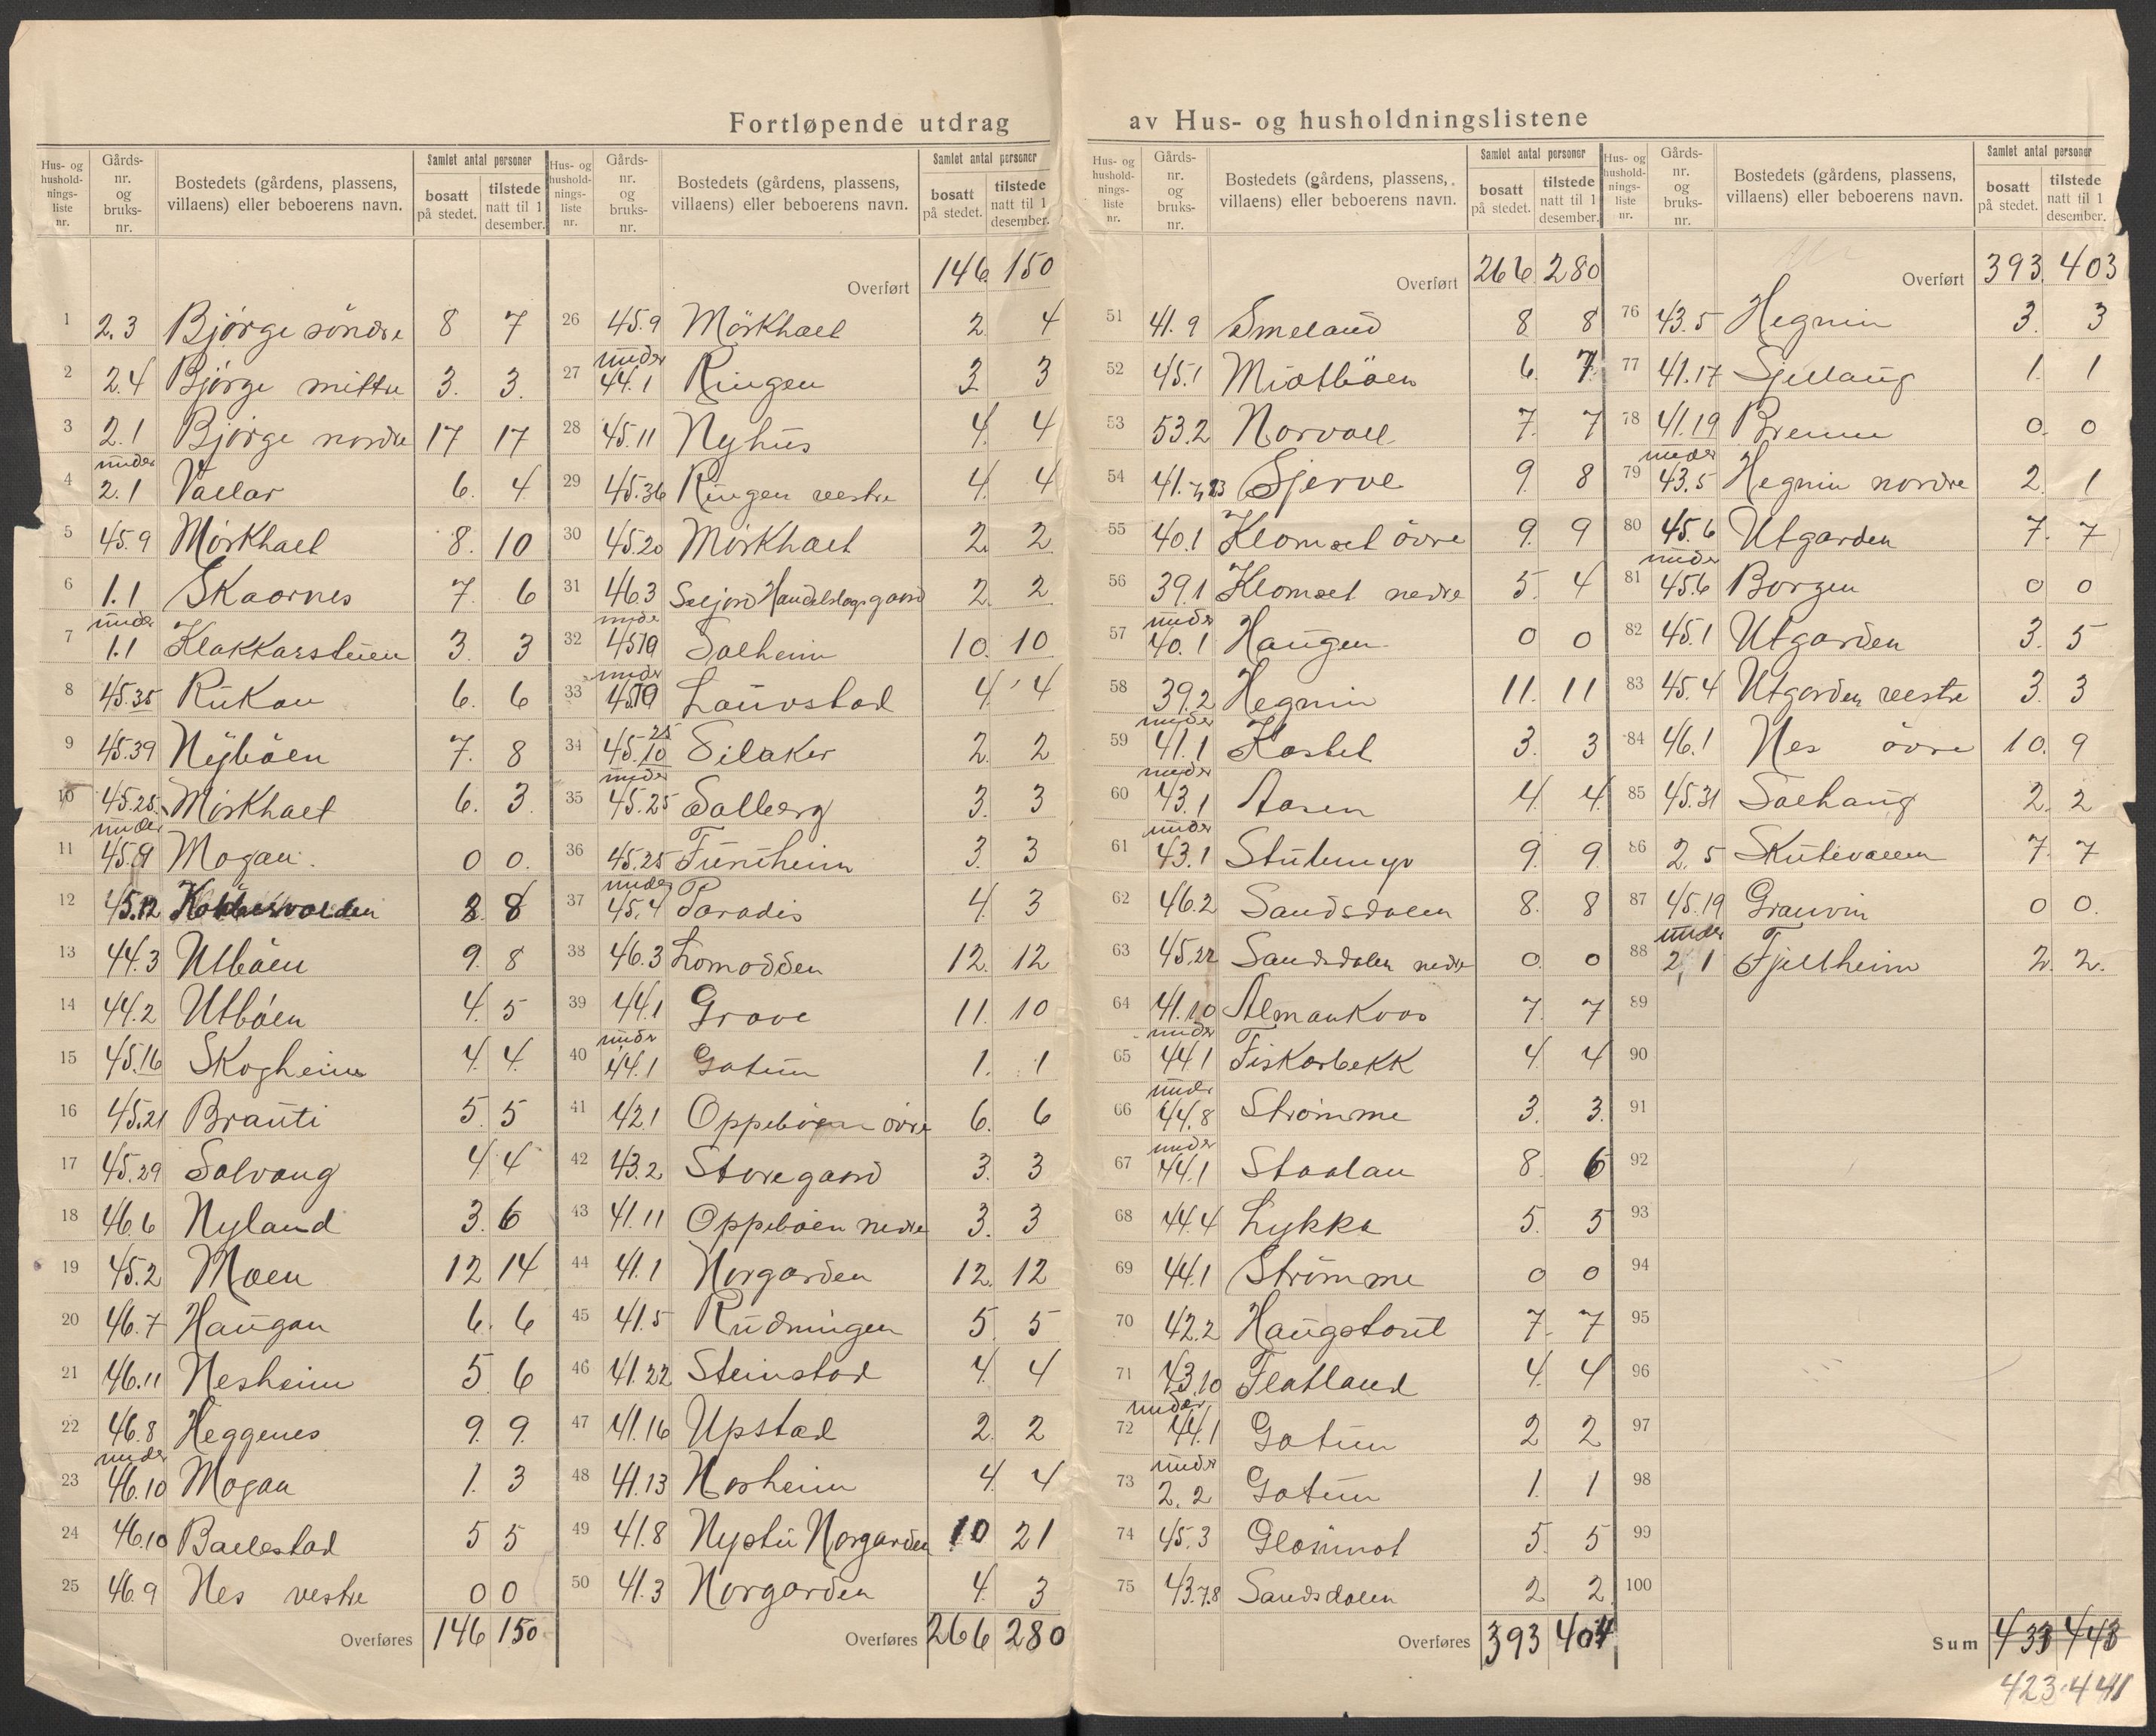 Fortløpende utdrag av Hus- og husholdningslistene
Hus- og husholdningsliste nr. Gårds-nr. og bruks-nr. Bostedets (gårdens, plassens, villaens) eller beboerens navn. Samlet antal personer bosatt på stedet. tilstede natt til 1 desember.
1 2.3 Bjørge söndre 8 7
2 2.4 Bjørge mittre 3. 3.
3 2.1 Bjørge nordre 17 17
4 under 2.1 Vallar 6. 4
5 45.9 Mörkhaet 8. 10
6 1.1 Skaarnes 7. 6
7 under 1.1 Klakkarstuen 3. 3
8 45.35 Rukan 6. 6
9 45.39 Nyböen 7. 8
10 45.25 Mörkhaet 6. 3.
11 under 45.9 Mogan. 0 0.
12 45.12 8
13 44.3 Utböen 9. 8
14 44.2 Utböen 4. 5
15 45.16 Skogheim 4. 4.
16 45.21 Brauti 5. 5
17 45.29 Solvang 4. 4
18 46.6 Nyland 3. 6
19 45.2 Moen 12 14
20 46.7 Haugan 6. 6
21 46.11 Nesheim 5 6
22 46.8 Heggenes 9. 9.
23 under 46.10 Mogan 1. 3
24 46.10 Ballestad 5 5
25 46.9 Nes vestre 0 0
Overføres 146 150
Hus- og husholdningsliste nr. Gårds-nr. og bruks-nr. Bostedets (gårdens, plassens, villaens) eller beboerens navn. Samlet antal personer bosatt på stedet. tilstede natt til 1 desember.
Overført 146. 150
26 45.9 Mörkhaet 2. 4
27 under 44.1 Ringen 3 3
28 45.11 Nyhus 4. 4
29 45.36 Ringen vestre 4. 4
30 45.20 Mörkhaet 2. 2
31 46.3 Seljord Handelslagsgaard 2. 2
32 under 45.19 Solheim 10. 10
33 under 45.19 Lauvstad 4. 4
34 45.10 25 Silaker 2. 2
35 under 45.25 Solberg 3. 3
36 45.25 Furuheim 3. 3
37 under 45.4 Paradis 4. 3
38 46.3 Lomodden 12. 12
39 44.1 Grave 11. 10
40 under 44.1 Gatun 1. 1
41 42.1 Oppeböen övre 6. 6
42 43.2 Storegaard 3. 3
43 41.11 Oppeböen nedre 3. 3
44 41.1 Norgarden 12. 12
45 41.5 Rudningen 5. 5
46 41.22 Steinstad 4. 4
47 41.16 Upstad 2. 2
48 41.13 Norheim 4. 4
49 41.8 Nystu Norgarden 10 21
50 41.3 Norgarden 4. 3
Overføres 266 280
Hus- og husholdningsliste nr. Gårds-nr. og bruks-nr. Bostedets (gårdens, plassens, villaens) eller beboerens navn. Samlet antal personer bosatt på stedet. tilstede natt til 1 desember.
Overført 266 280
51 41.9 Smeland 8. 8
52 45.1 Midtböen 6. 7.
53 53.2 Norvall 7. 7
54 41.7,23 Gjerve 9. 8
55 40.1 Klomset övre 9. 9
56 39.1 Klomset nedre 5. 4
57 under 40.1 Haugen 0 0
58 39.2 Hegnin 11. 11
59 under 41.1 Kastet 3. 3
60 under 43.1 Aasen 4. 4.
61 under 43.1 Stutemyr 9. 9.
62 46.2 Sandsdalen 8. 8
63 45.22 Sandsdalen nedre 0. 0
64 41.10 Almankaas 7. 7
65 under 44.1 Fiskarbekk 4. 4
66 under 44.8 Strömme 3. 3.
67 under 44.1 Staalan 8. 6
68 44.4 Lykkja 5. 5
69 44.1 Strömme 0 0
70 42.2 Haugstoul 7. 7
71 43.10 Flatland 4. 4
72 under 44.1 Gatun 2 2
73 under 2.2 Gatun 1. 1
74 45.3 Glosimot 5. 5
75 43.7.8 Sandsdalen 2 2
Overføres 393 404
Hus- og husholdningsliste nr. Gårds-nr. og bruks-nr. Bostedets (gårdens, plassens, villaens) eller beboerens navn. Samlet antal personer bosatt på stedet. tilstede natt til 1 desember.
Overført 393. 403
76 43.5 Hegnin 3. 3
77 41.17 Sjellaug 1. 1
78 41.19 Brenne 0. 0
79 under 43.5 Hegnin nordre 2. 1
80 45.6 Utgarden 7. 7
81 under 45.6 Borgen 0 0
82 45.1 Utgarden 3. 5
83 45.4 Utgarden vestre 3. 3
84 46.1 Nes övre 10. 9
85 45.31 Solhaug 2. 2
86 2.5 Skutevallen 7. 7
87 45.19 Granvin 0 0.
88 under 2,1 Fjellheim 2. 2.
89
90
91
92
93
94
95
96
97
98
99
100
Sum 433 443
423. 441